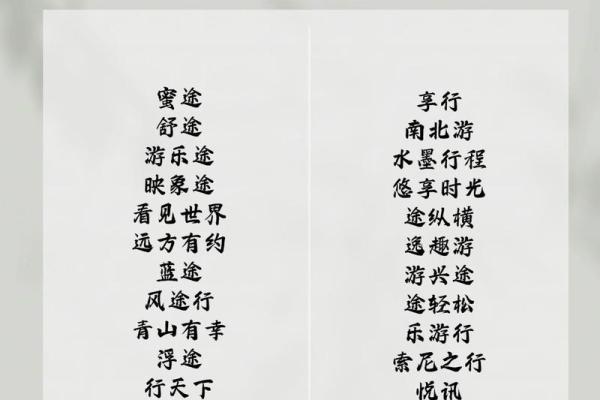 蜜途
舒途
游乐途
映象途
看见世界
远方有约
蓝途
风途行
青山有幸
浮途
行天下
享行
南北游
水墨行程
悠享时光
途纵横
逸趣游
游兴途
途轻松
乐游行
索尼之行
悦讯